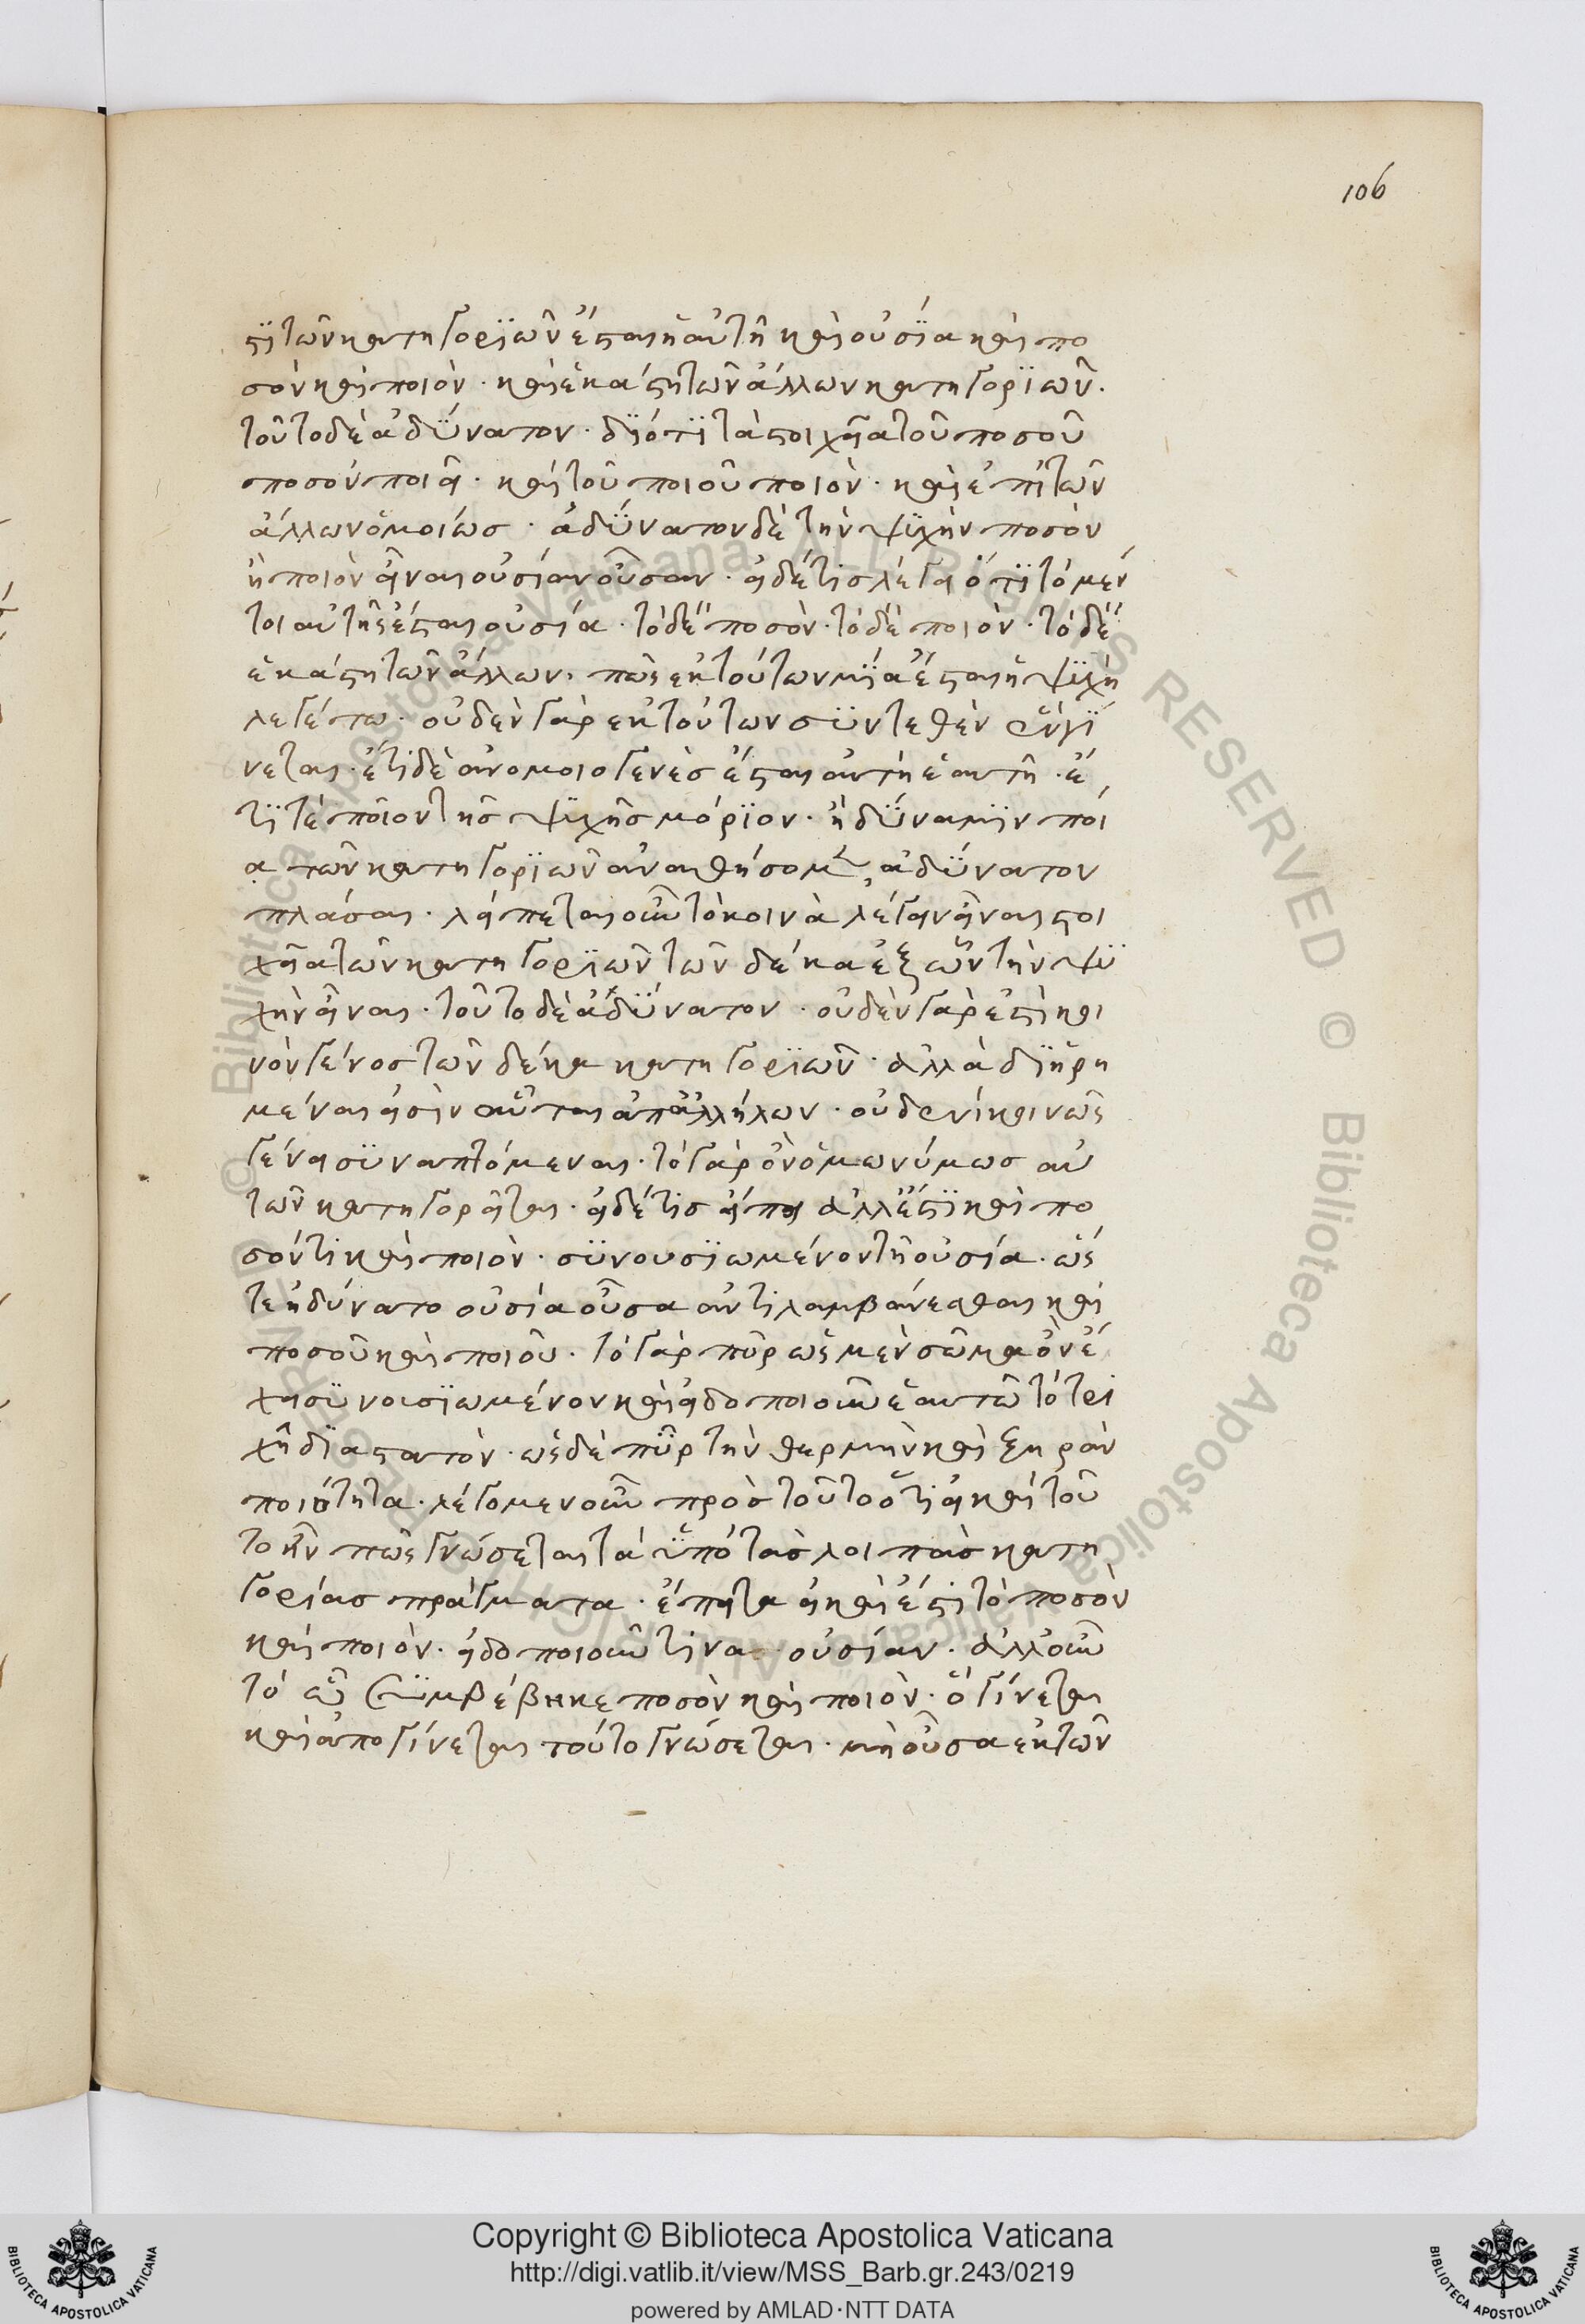 106
ςϊ τῶν κατηγορϊῶν ἔσται ἡ αὐτὴ καὶ οὐσΐα καὶ πο
σὸν καὶ ποιὸν · καὶ ἑκάστη τῶν ἄλλων κατηγορϊῶν ·
τοῦτο δὲ ἀδΰνατον · δϊότϊ τὰ στοιχεῖα τοῦ ποσοῦ
ποσὸν ποιεῖ · καὶ τοῦ ποιοῦ ποιὸν · καὶ ἐπὶ τῶν
ἄλλων ὁμοίως · ἀδΰνατον δὲ τὴν ψϋχὴν ποσὸν
ἢ ποιὸν εἶναι οὐσίαν οὖσαν · εἰ δέ τις λέγει ὅτϊ τὸ μέν
τοι αὐτῆς ἔσται οὐσία · τὸ δὲ ποσὸν · τὸ δὲ ποιὸν · τὸ δὲ
ἑκάστη τῶν ἄλλων · πῶς ἐκ τούτων μΐα ἔσται ἡ ψϋχὴ
λεγέτω · οὐδὲν γὰρ ἐκ τούτων σϋντεθὲν ἓν γΐ
νεται · ἔτι δὲ ἀνομοιογενὲς ἔσται αὐτὴ ἑαυτῆ · ἔ
τϊ τέ ποῖον τῆς ψϋχῆς μόρϊον · ἢ δΰναμϊν ποί
α τῶν κατηγορϊῶν ἀναθήσομ , ἀδΰνατον
πλάσαι · λείπεται οὖν τὸ κοινὰ λέγειν εἶναι στοι
χεῖα τῶν κατηγορϊῶν τῶν δέκα ἐξ ὧν τὴν ψϋ
χὴν εἶναι · τοῦτο δὲ ἀδΰνατον · οὐδὲν γὰρ ἐστὶ κοι
νὸν γένος τῶν δέκα κατηγορϊῶν · ἀλλὰ δϊῃρη
μέναι εἰσὶν αὗται ἀπ' ἀλλήλων · οὐδενὶ κοινῶς
γένει σϋναπτόμεναι · τὸ γὰρ ὂν ὁμωνύμως αὐ
τῶν κατηγορεῖται · εἰ δέ τις εἴποι ἀλλ' ἔστϊ καὶ πο
σόν τι καὶ ποιὸν · σϋνουσϊωμένον τῆ οὐσία · ὥς
τε ἠδύνατο οὐσία οὖσα ἀντιλαμβάνεσθαι καὶ
ποσοῦ καὶ ποιοῦ · τὸ γὰρ πῦρ ὡς μὲν σῶμα ὂν ἔ
χει σϋνουσϊωμένον καὶ εἰδοποιοῦν ἑαυτῶ τὸ τρι
χῆ δϊαστατὸν · ὡς δὲ πῦρ τὴν θερμὴν καὶ ξηρὰν
ποιότητα · λέγομεν οὖν πρὸς τοῦτο ὅτι εἰ καὶ τοῦ
το ἦν πῶς γνώσεται τὰ ὑπὸ τὰς λοιπὰς κατη
γορίας πράγματα · ἔπειτα εἰ καὶ ἔστι τὸ ποσὸν
καὶ ποιὸν · εἰδοποιοῦν τινα οὐσίαν · ἀλλ' οὖν
τὸ ὧ σϋμβέβηκε ποσὸν καὶ ποιὸν · ὃ γίνεται
καὶ ἀπογίνεται τοῦτο γνώσεται · μὴ οὖσα ἐκ τῶν
© Biblioteca Apostolica Vaticana ALL RIGHTS RESERVED © Biblioteca Apostolica Vaticana ALL RIGHTS RESERVED
Copyright © Biblioteca Apostolica Vaticana
http://digi.vatlib.it/view/MSS_Barb.gr.243/0219
powered by AMLAD·NTT DATA
BIBLIOTECA APOSTOLICA VATICANA
BIBLIOTECA APOSTOLICA VATICANA